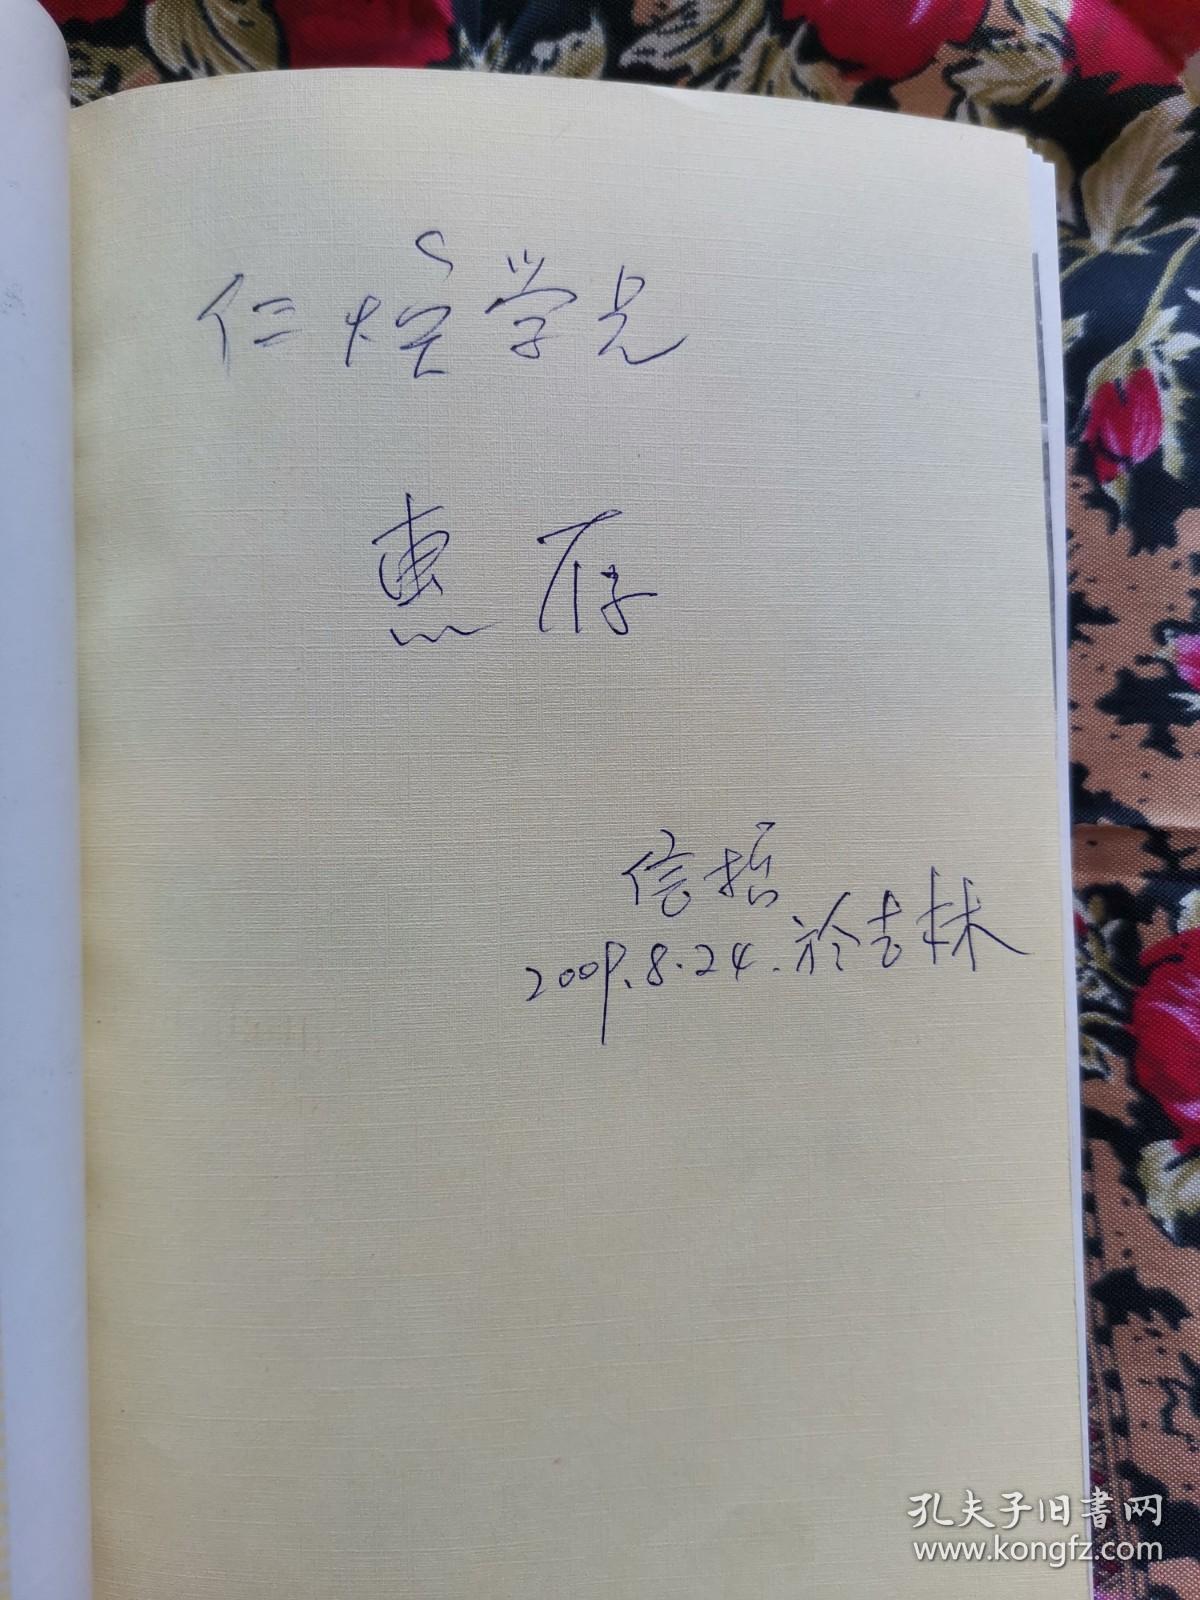 仁煌学兄
惠存
信哲
2009.8.24.於吉林
孔夫子旧書网
www.kongfz.com